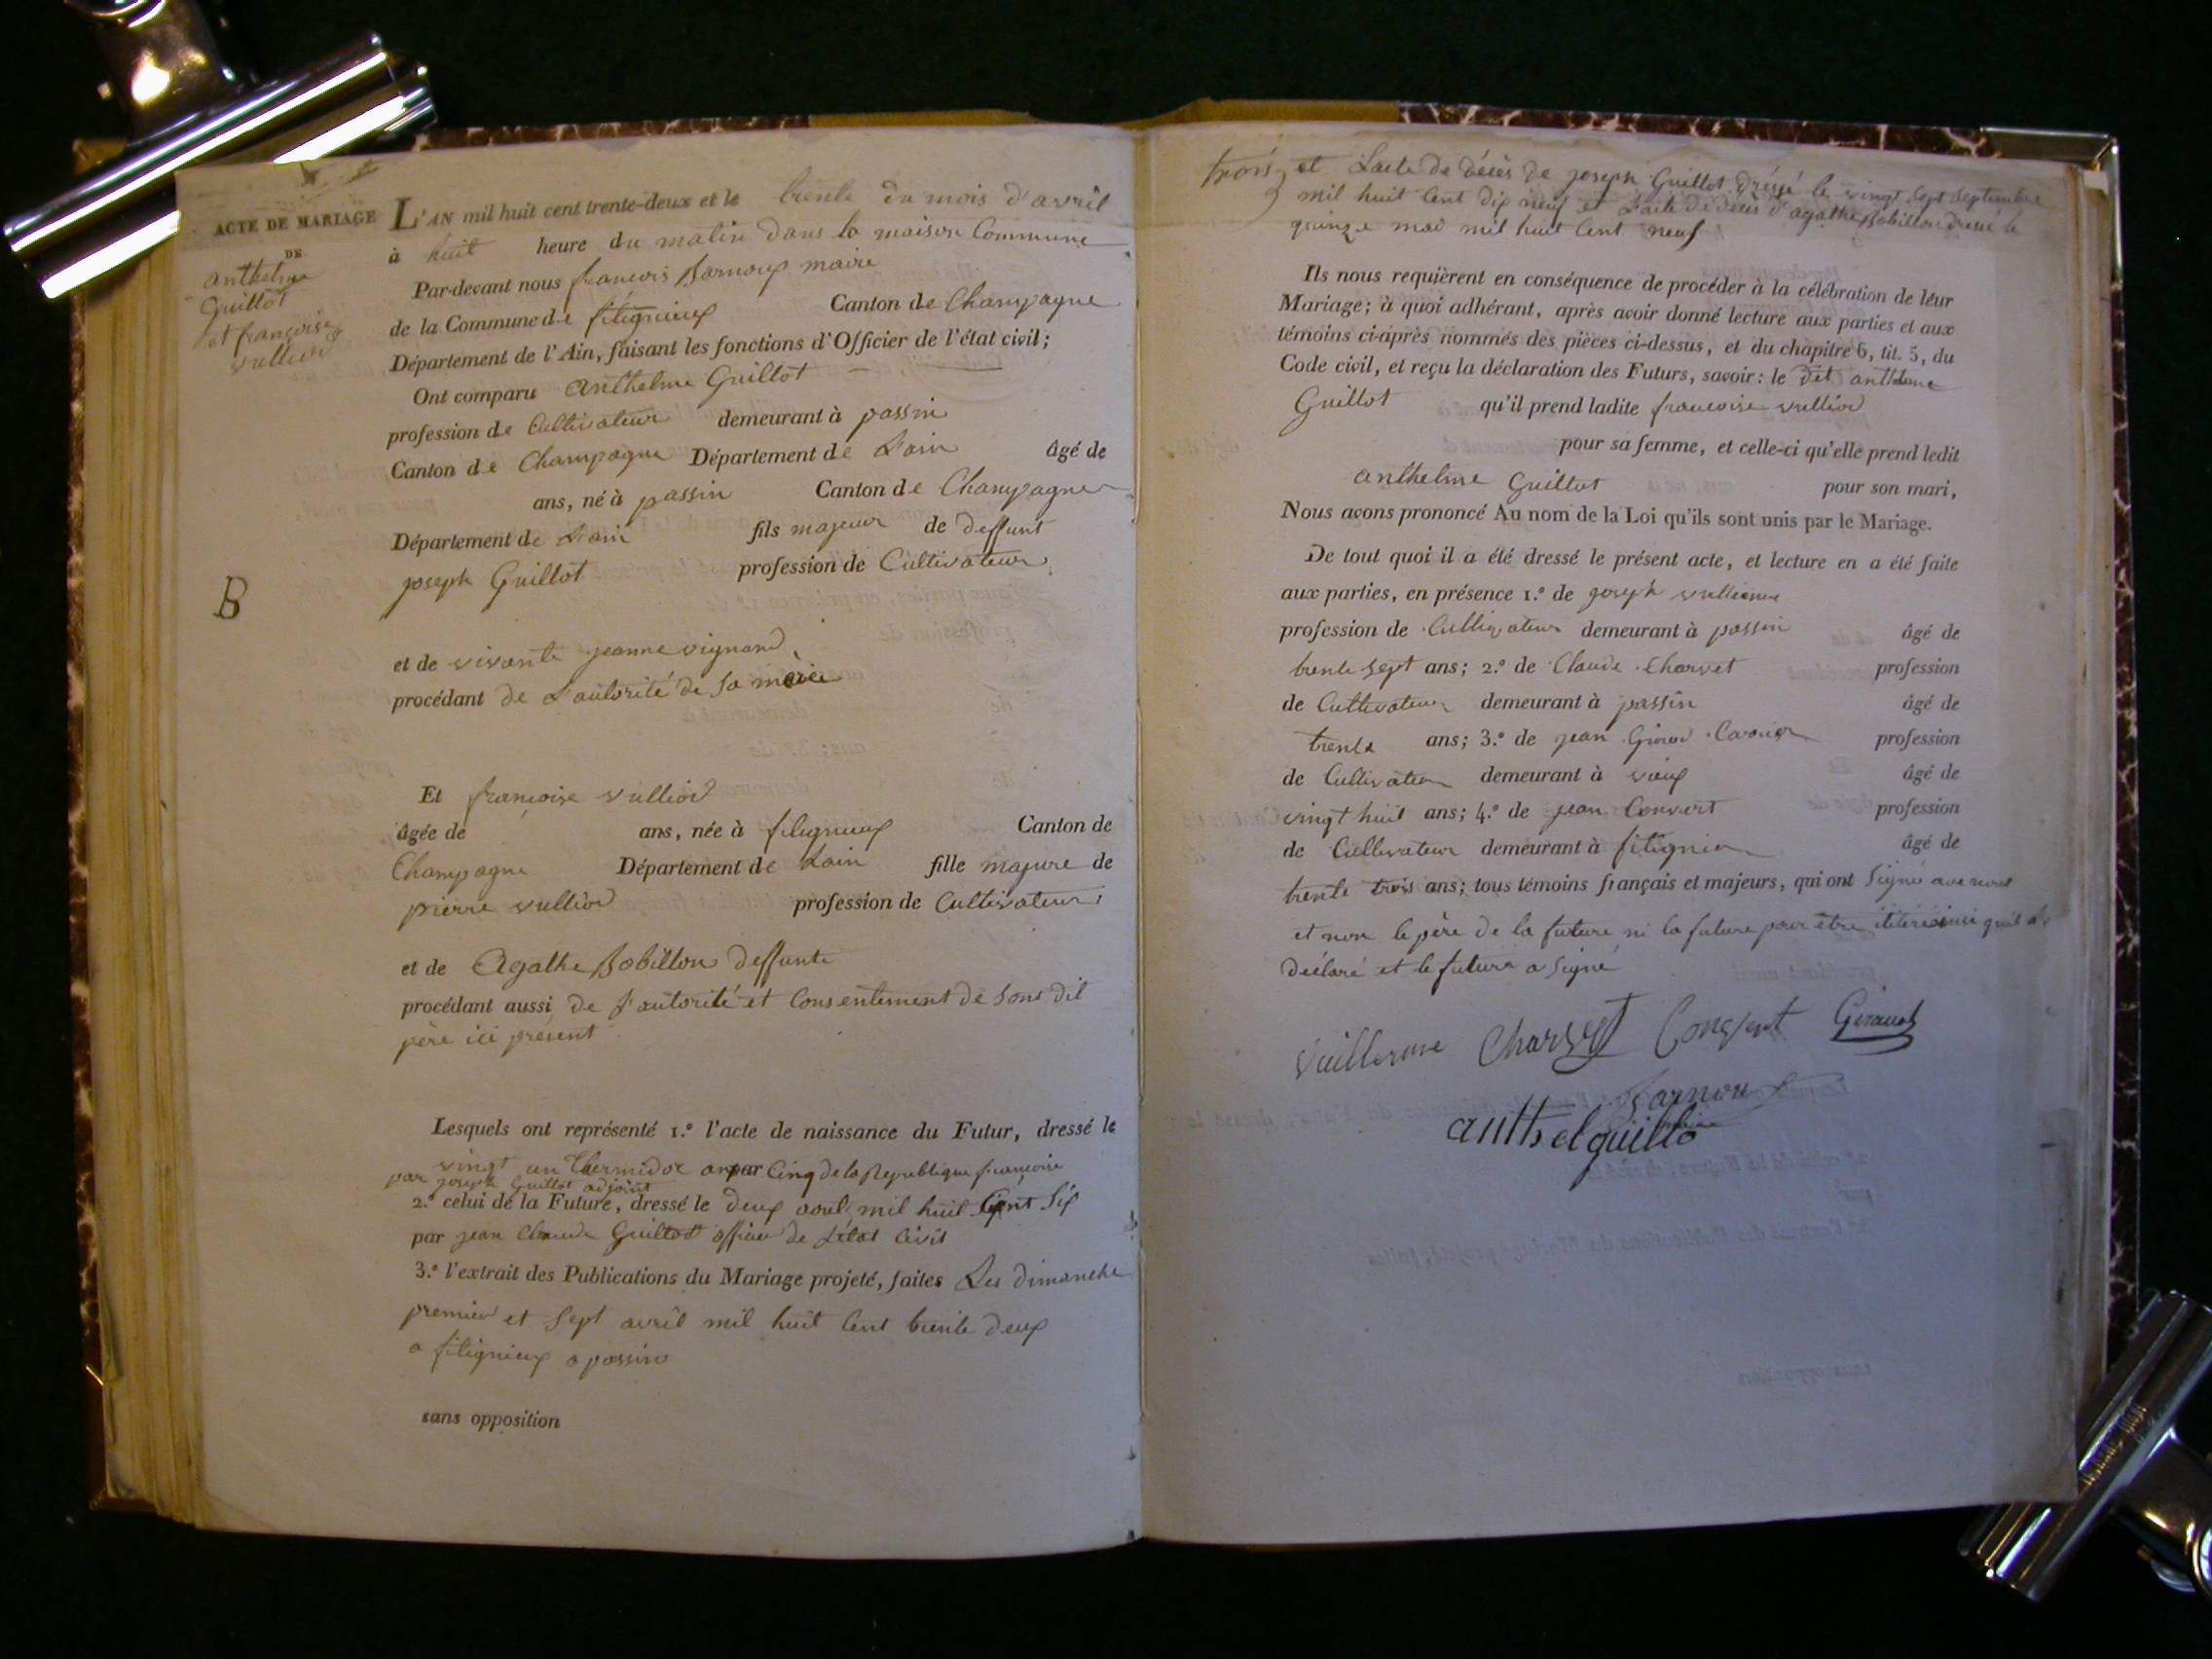 ACTE DE MARIAGE
DE
anthelme
Guillot
et françoise
vulliod
B
L'AN mil huit cent trente-deux et le trente du mois d'avril
à huit heure du matin dans la maison Commune
Par-devant nous francois Barnoux maire
de la Commune de fitignieux Canton de Champagne
Département de l'Ain, faisant les fonctions d'Officier de l'état civil;
Ont comparu anthelme Guillot
profession de Cultivateur demeurant à passin
Canton de Champagne Département de L'ain âgé de
ans, né à passin Canton de Champagne
Département de L'ain fils majeur de deffunt
joseph Guillot profession de Cultivateur
et de vivante jeanne vignand
procédant de L'autorité de sa mère
Et françoise vulliod
âgée de ans, née à fitignieux Canton de
Champagne Département de Lain fille majure de
pierre vulliod profession de Cultivateur
et de Agathe Bobillon deffunte
procédant aussi de L'autorité et Consentement de sont dit
père ici présent
Lesquels ont représenté 1.º l'acte de naissance du Futur, dressé le
vingt un thermidor an Cinq de la Republique francoise
par joseph Guillot adjoint
2.º celui de la Future, dressé le deux aout mil huit Cent Six
par jean Claude Guillot officier de L'état Civil
3.º l'extrait des Publications du Mariage projeté, faites Les dimanche
premier et Sept avril mil huit Cent trente deux
a fitignieux a passin
sans opposition
trois et L'acte de décès de joseph Guillot dréssé le vingt Sept Septembre
mil huit Cent dix neuf et L'acte de décès d'agathe Bobillon dressé le
quinze mai mil huit Cent neuf
Ils nous requièrent en conséquence de procéder à la célébration de leur
Mariage; à quoi adhérant, après avoir donné lecture aux parties et aux
témoins ci-après nommés des pièces ci-dessus, et du chapitre 6, tit. 5, du
Code civil, et reçu la déclaration des Futurs, savoir: le dit anthelme
Guillot qu'il prend ladite francoise vulliod
pour sa femme, et celle-ci qu'elle prend ledit
anthelme Guillot pour son mari,
Nous avons prononcé Au nom de la Loi qu'ils sont unis par le Mariage.
De tout quoi il a été dressé le présent acte, et lecture en a été faite
aux parties, en présence 1.º de joseph vullierme
profession de Cultivateur demeurant à passin âgé de
trente Sept ans; 2.º de Claude Charvet profession
de Cultivateur demeurant à passin âgé de
trente ans; 3.º de jean Girod profession
de Cultivateur demeurant à vieux âgé de
vingt huit ans; 4.º de jean Convert profession
de Cultivateur demeurant à fitignieu âgé de
trente trois ans; tous témoins français et majeurs, qui ont Signé avec nous
et non le père de la future ni la future pour être ainsi qu'il a
déclaré et le future a Signé
Vuillerme Charvet Convert Giraud
Barnoux
maire
anthelguillo